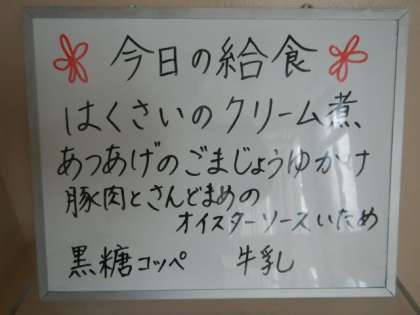 今日の給食
はくさいのクリーム煮
あつあげのごまじょうゆかけ
豚肉とさんどまめの
オイスターソースいため
黒糖コッペ 牛乳